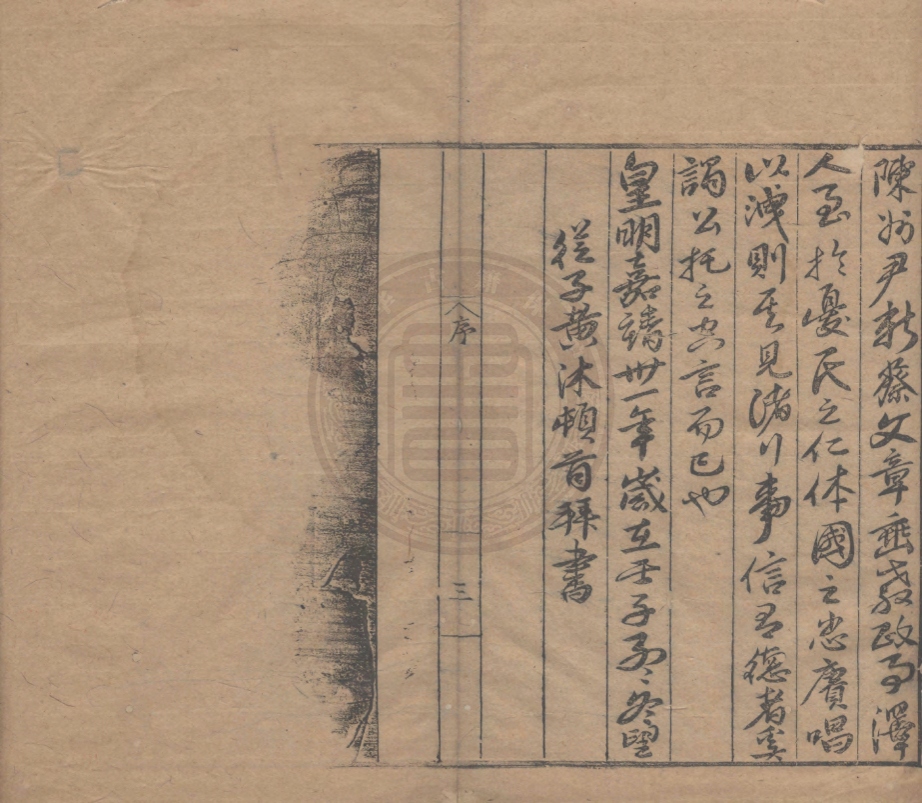 陳州尹新蔡文章垂教政事澤
人至於憂民之仁体國之忠賡唱
以洩則其見諸行事信有德者矣
謁公托之空言而已也
皇明嘉靖卅一年歲在壬子孟冬望
從子黃沐頓首拜書
序
三